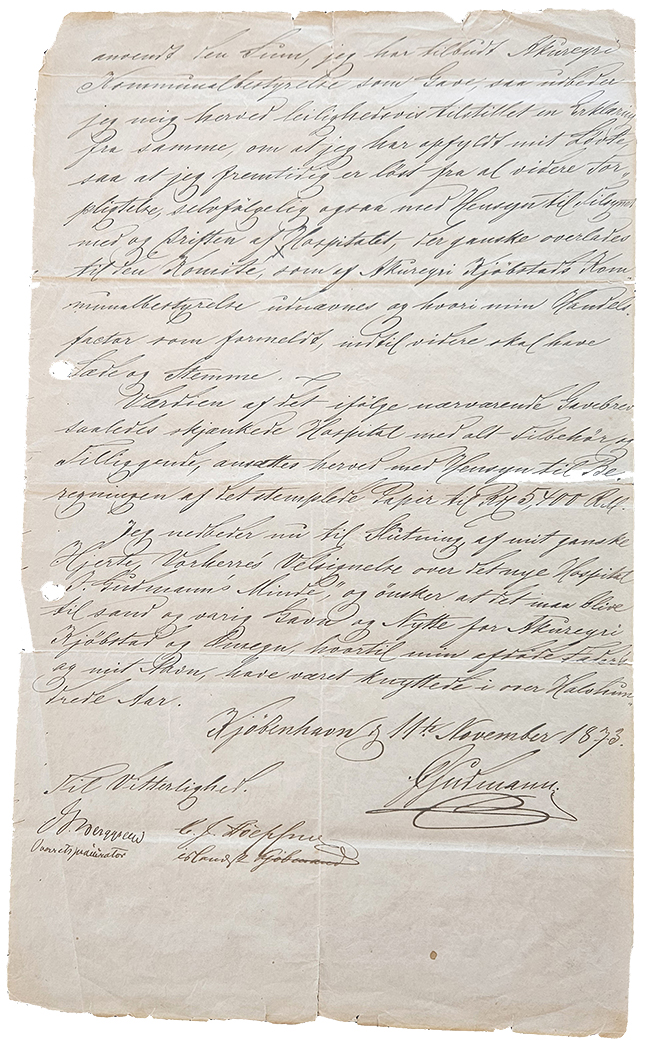 anvendt den Sum, jeg har tilbudt Akureyri
Kommunalbestyrelse som Gave, saa udbeder
jeg mig herved leilighedsvis tilstillet en Erklæring
fra samme, om at jeg har opfyldt mit Løfte,
saa at jeg fremtidig er løst fra al videre For-
pligtelse, selvfølgelig ogsaa med Hensyn til Tilsynet
med og Driften af Hospitalet, der ganske overlades
til den Komite, som af Akureyri Kjøbstads Kom-
munalbestyrelse udnævnes og hvori min Handels-
factor som formeldt, indtil videre skal have
Sæde og Stemme.
Værdien af det ifølge nærværende Gavebrev
saaledes skjænkede Hospital med alt Tilbehør og
Tilliggende, ansættes herved med Hensyn til Be-
regningen af det stemplede Papir til 5,400 Rdl.
Jeg nedbeder nu til Slutning af mit ganske
Hjerte, Vorherres Velsignelse over det nye Hospital
"Gudmann's Minde," og ønsker at det maa blive
til sand og varig Gavn og Nytte for Akureyri
Kjøbstad og Omegn, hvortil min afdøde Faders
og mit Navn, have været knyttede i over Halvhun-
drede Aar.
Kjøbenhavn d 11te November 1873.
Gudmann.
Til Vitterlighed.
C. J. Höepfner
Overretsprocurator
islandsk Kjøbmand